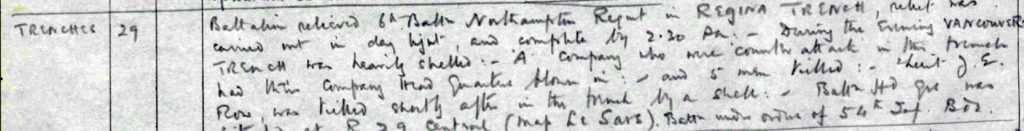 TRENCHES 29 Battalion relieved 6th Battn Northampton Regnt in REGINA TRENCH, relief was
carried out in day light, and complete by 2.30 pm :- During the Evening VANCOUVER
TRENCH was heavily shelled :- 'A' Company who were counter attack in this trench
had their Company Head Quarters blown in :- and 5 men killed :- Lieut J.E.
Row, was killed shortly after in this trench by a shell :- Battn Hd Qrs was
at R 29 Central (Map Le Sars). Battn under orders of 54th Inf. Bde.